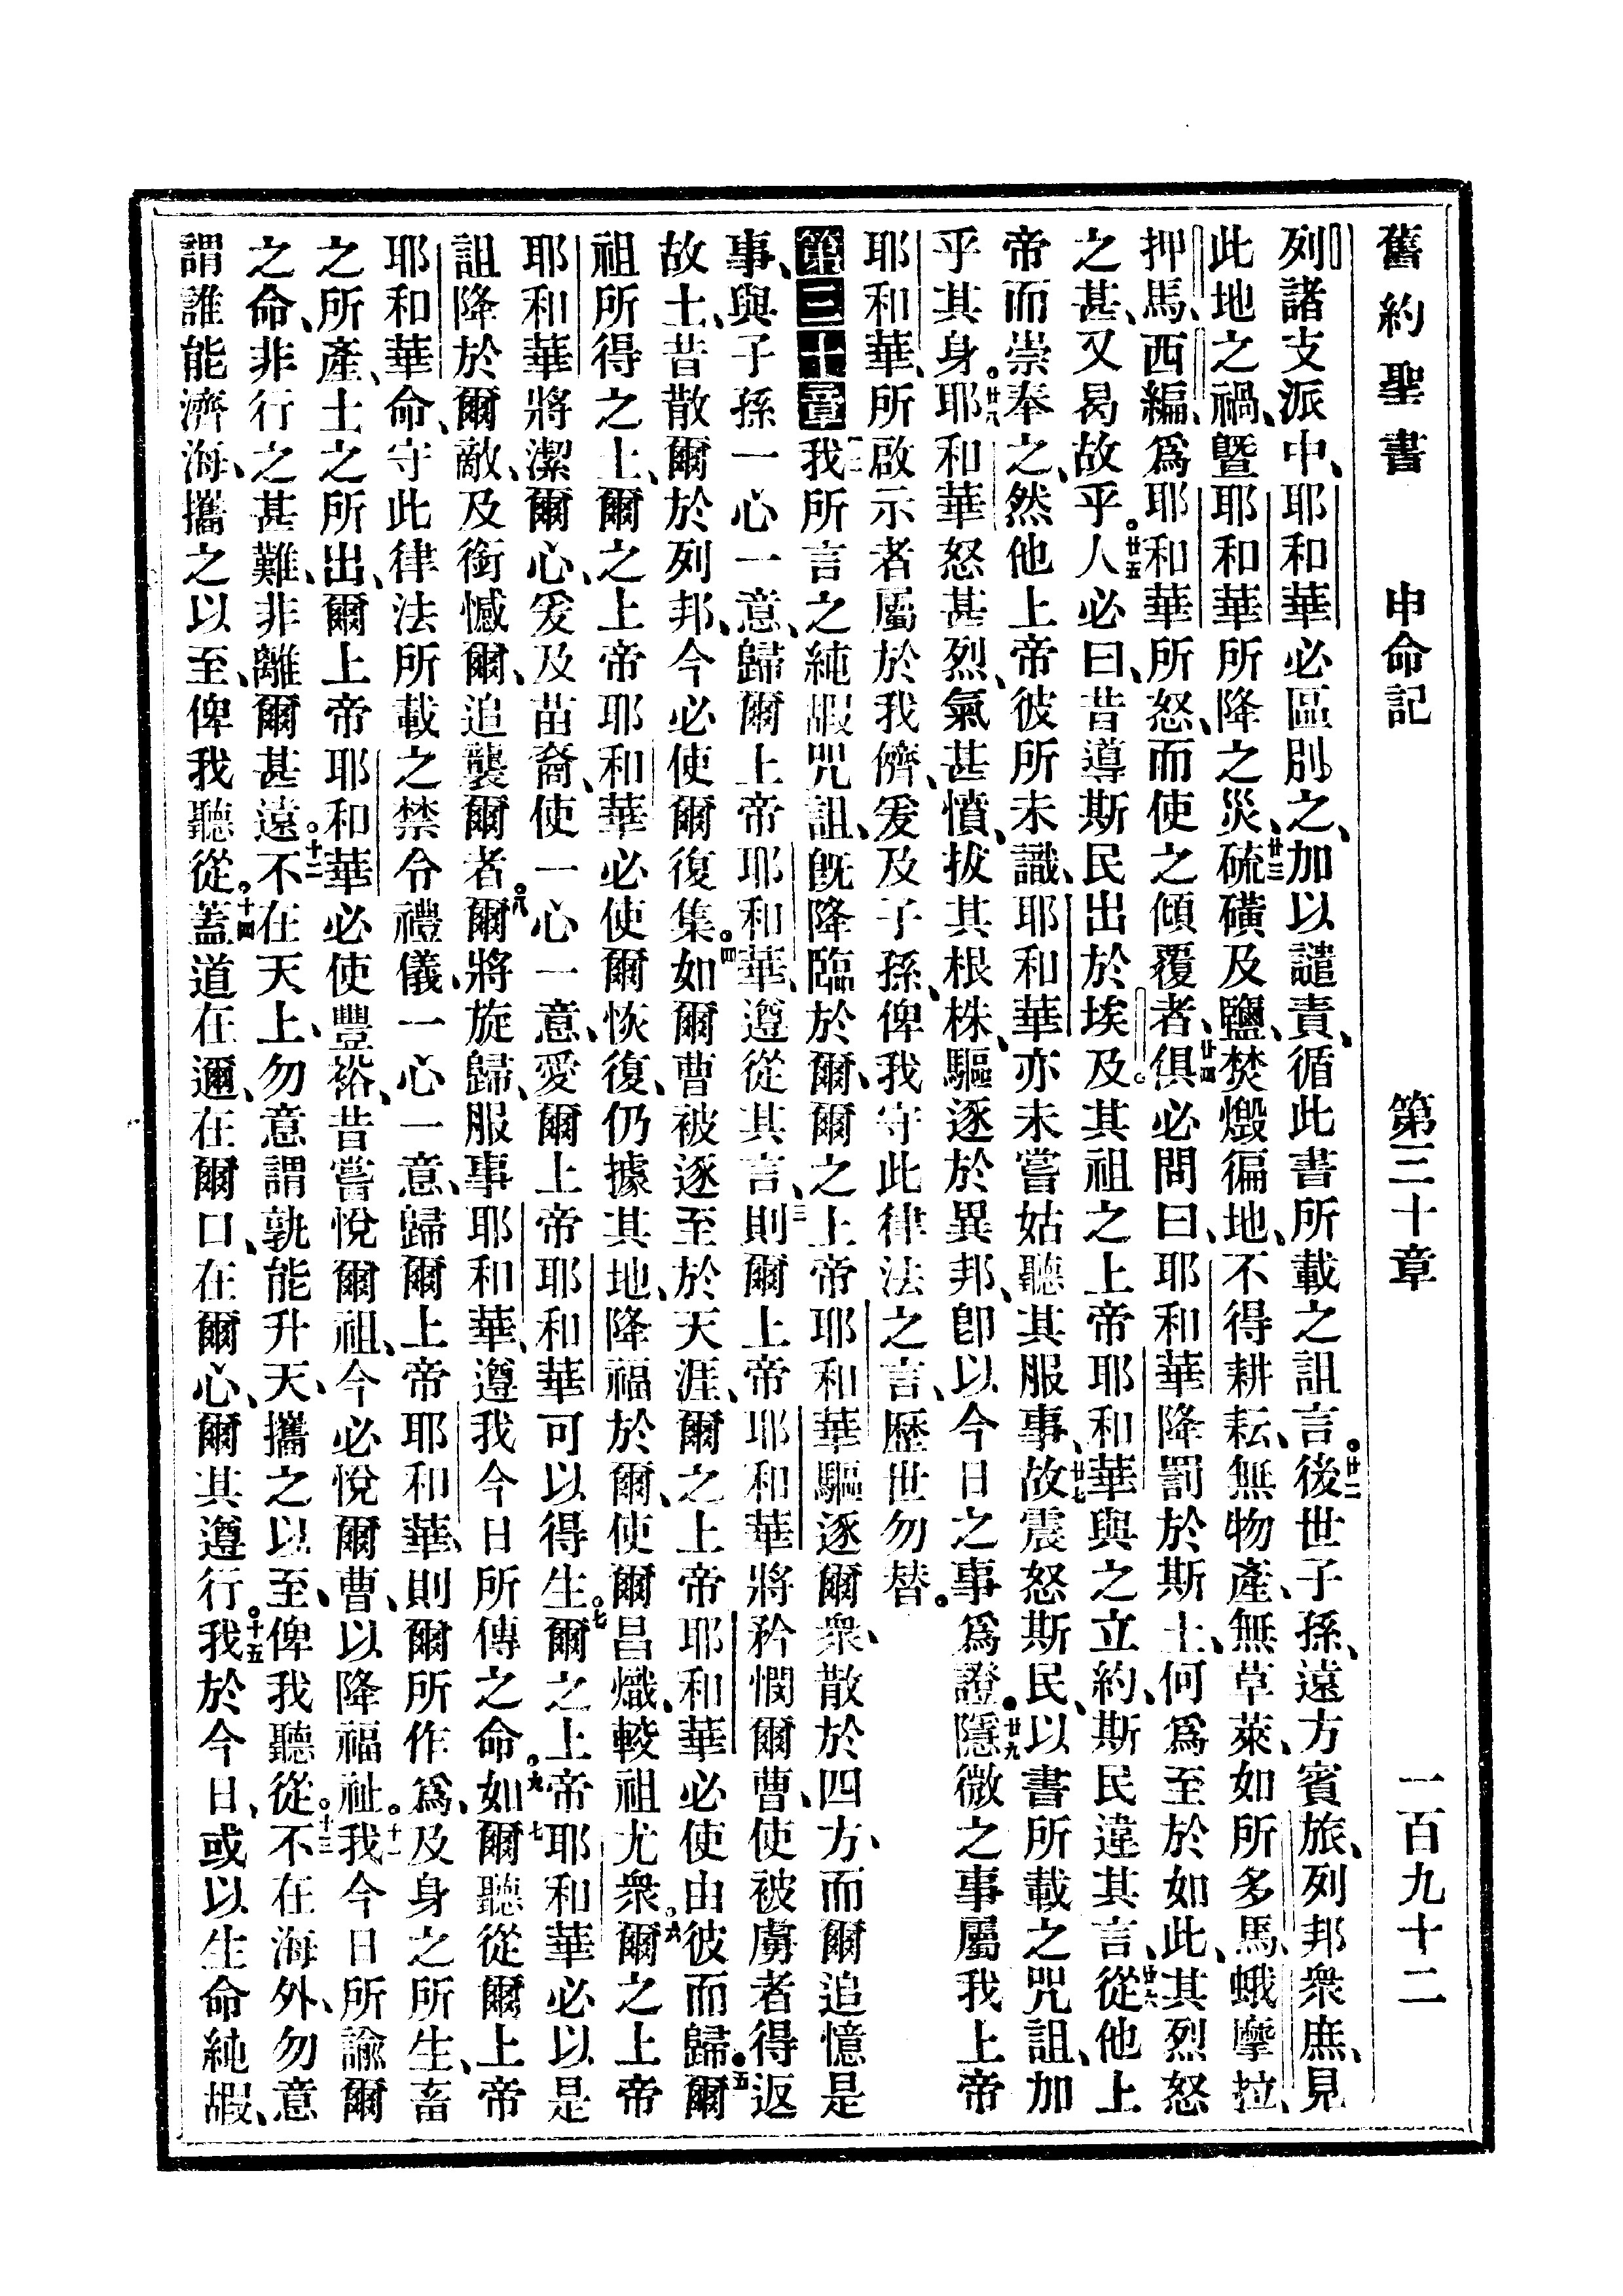 舊約聖書 申命記 第三十章 一百九十二
列諸支派中、耶和華必區別之、加以譴責、循此書所載之詛言。廿二後世子孫、遠方賓旅、列邦衆庶、見
此地之禍、曁耶和華所降之災、廿三硫磺及鹽、焚燬徧地、不得耕耘、無物產、無草萊、如所多馬、蛾摩拉、
押馬、西編、爲耶和華所怒、而使之傾覆者、廿四俱必問曰、耶和華降罰於斯土、何爲至於如此、其烈怒
之甚、又曷故乎。廿五人必曰、昔導斯民出於埃及。其祖之上帝耶和華與之立約、斯民違其言、廿六從他上
帝而崇奉之、然他上帝彼所未識、耶和華亦未嘗姑聽其服事、廿七故震怒斯民、以書所載之咒詛、加
乎其身。廿八耶和華怒甚烈、氣甚憤、拔其根株、驅逐於異邦、卽以今日之事爲證。廿九隱微之事屬我上帝
耶和華、所啟示者屬於我儕、爰及子孫、俾我守此律法之言、歷世勿替。
第三十章 一二我所言之純嘏咒詛、旣降臨於爾、爾之上帝耶和華驅逐爾衆、散於四方、而爾追憶是
事、與子孫一心一意、歸爾上帝耶和華、遵從其言、三則爾上帝耶和華將矜憫爾曹、使被虜者得返
故土、昔散爾於列邦、今必使爾復集。四如爾曹被逐至於天涯、爾之上帝耶和華必使由彼而歸。五爾
祖所得之土、爾之上帝耶和華必使爾恢復、仍據其地、降福於爾、使爾昌熾、較祖尤衆。六爾之上帝
耶和華將潔爾心、爰及苗裔、使一心一意、愛爾上帝耶和華可以得生。七爾之上帝耶和華必以是
詛降於爾敵、及銜憾爾、追襲爾者。八爾將旋歸、服事耶和華、遵我今日所傳之命。九如爾聽從爾上帝
耶和華命、守此律法所載之禁令禮儀、一心一意、歸爾上帝耶和華、則爾所作爲、及身之所生、畜
之所產、土之所出、爾上帝耶和華必使豐裕、昔嘗悅爾祖、今必悅爾曹、以降福祉。十一我今日所諭爾
之命、非行之甚難、非離爾甚遠。十二不在天上、勿意謂孰能升天、攜之以至、俾我聽從。十三不在海外、勿意
謂誰能濟海、攜之以至、俾我聽從。十四蓋道在邇、在爾口、在爾心、爾其遵行。十五我於今日、或以生命純嘏、